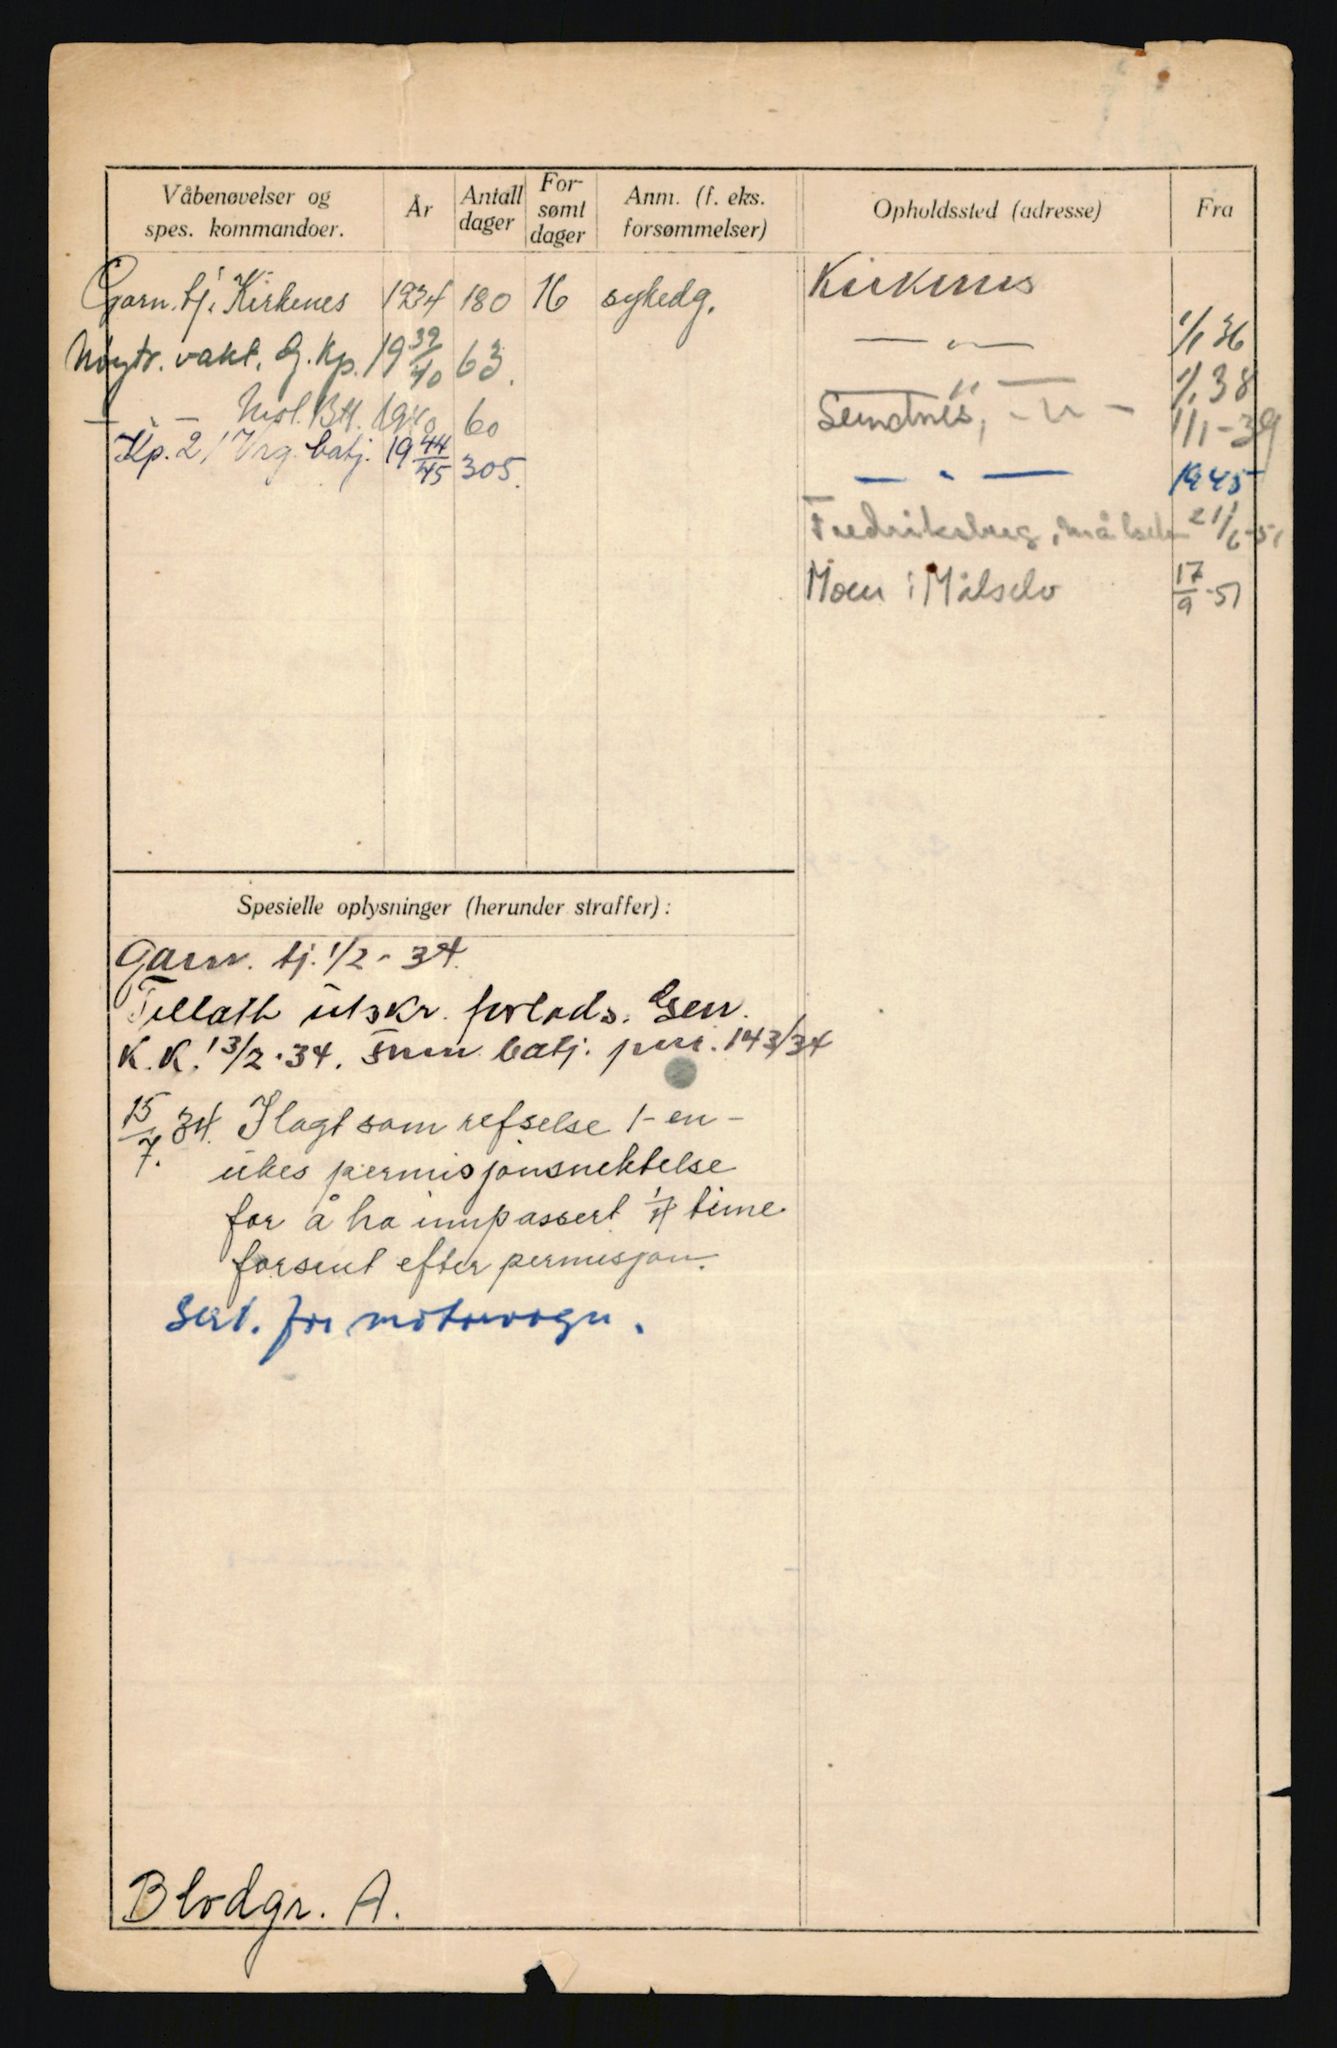 Våbenøvelser og spes. kommandoer. År Antall dager For-sømt dager Anm. (f. eks. forsømmelser) Opholdssted (adresse) Fra
Garn. tj. Kirkenes 1934 180 16 sykedg. Kirkenes
Nøytr. vakt. G. Kp. 19 39/40 63. — „ — 1/1 36
— „ — 1/1 38
— „ — Btl. 1940 60 Sandnes, - „ - 1/1-39
Kp. 2/Vrg. batj. 19 44/45 305. — „ — 1945
Fredriksberg, Målselv 21/6-51
Moen i Målselv 17/9-51
Spesielle oplysninger (herunder straffer):
Garn. tj. 1/2-34.
Tillatt utskr. forlods. Gen.
K. K. 13/2-34. batj. 143/34
15/7. 34. Ilagt som refselse 1-en-
ukes permisjonsnektelse
for å ha innpassert 1/4 time
forsent efter permisjon.
Sert. for motorvogn.
Blodgr. A.